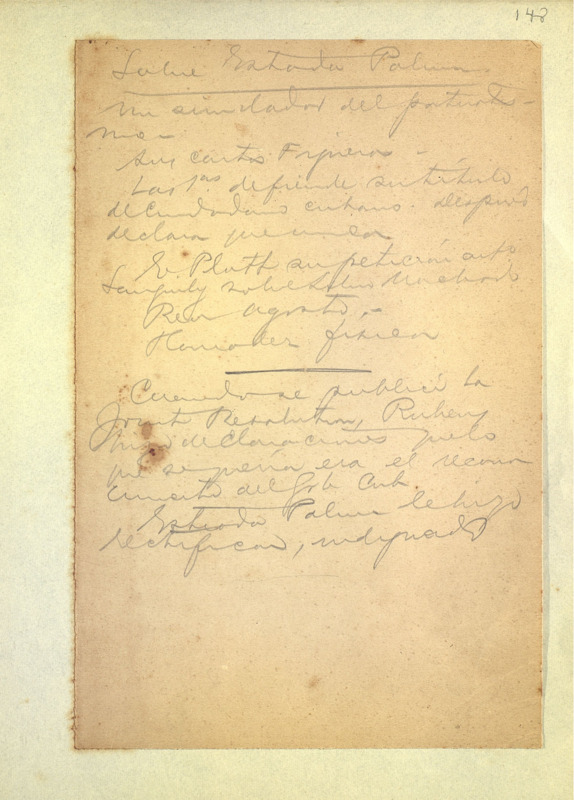 148
Sobre Estrada Palma
Un simulador del patriotis-
mo -
Sus cartas Figueras -
Las 1as defiende su título
de Ciudadano cubano. Después
declara que nunca
E. Platt su petición
Sanguily sobre
Rev agosto -
Honradez física
Cuando se publicó la
Joint Resolution, Rubens
hizo declaraciones que lo
que se quería era el recono
cimiento del Gob. Cub.
Estrada Palma le hizo
rectificar, indignado